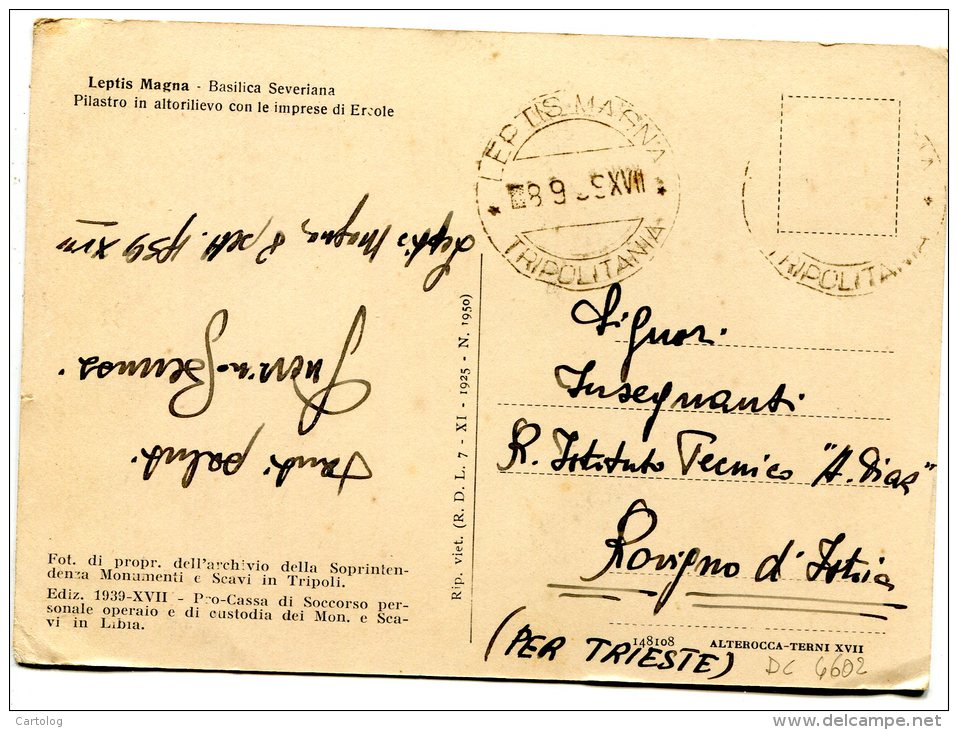 Leptis Magna - Basilica Severiana
Pilastro in altorilievo con le imprese di Ercole
LEPTIS MAGNA
8 9 39 XVII
TRIPOLITANIA
TRIPOLITANIA
Leptis Magna, 8 sett. 1939 XVII
tanti saluti.
Signori
Insegnanti
R. Istituto Tecnico "A. Diaz"
Rovigno d'Istria
(PER TRIESTE)
Rip. viet. (R. D. L. 7 - XI - 1925 - N. 1950)
Fot. di propr. dell'archivio della Soprinten-
denza Monumenti e Scavi in Tripoli.
Ediz. 1939-XVII - Pro-Cassa di Soccorso per-
sonale operaio e di custodia dei Mon. e Sca-
vi in Libia.
148108 ALTEROCCA-TERNI XVII
DC 4602
Cartolog
http://www.delcampe.net